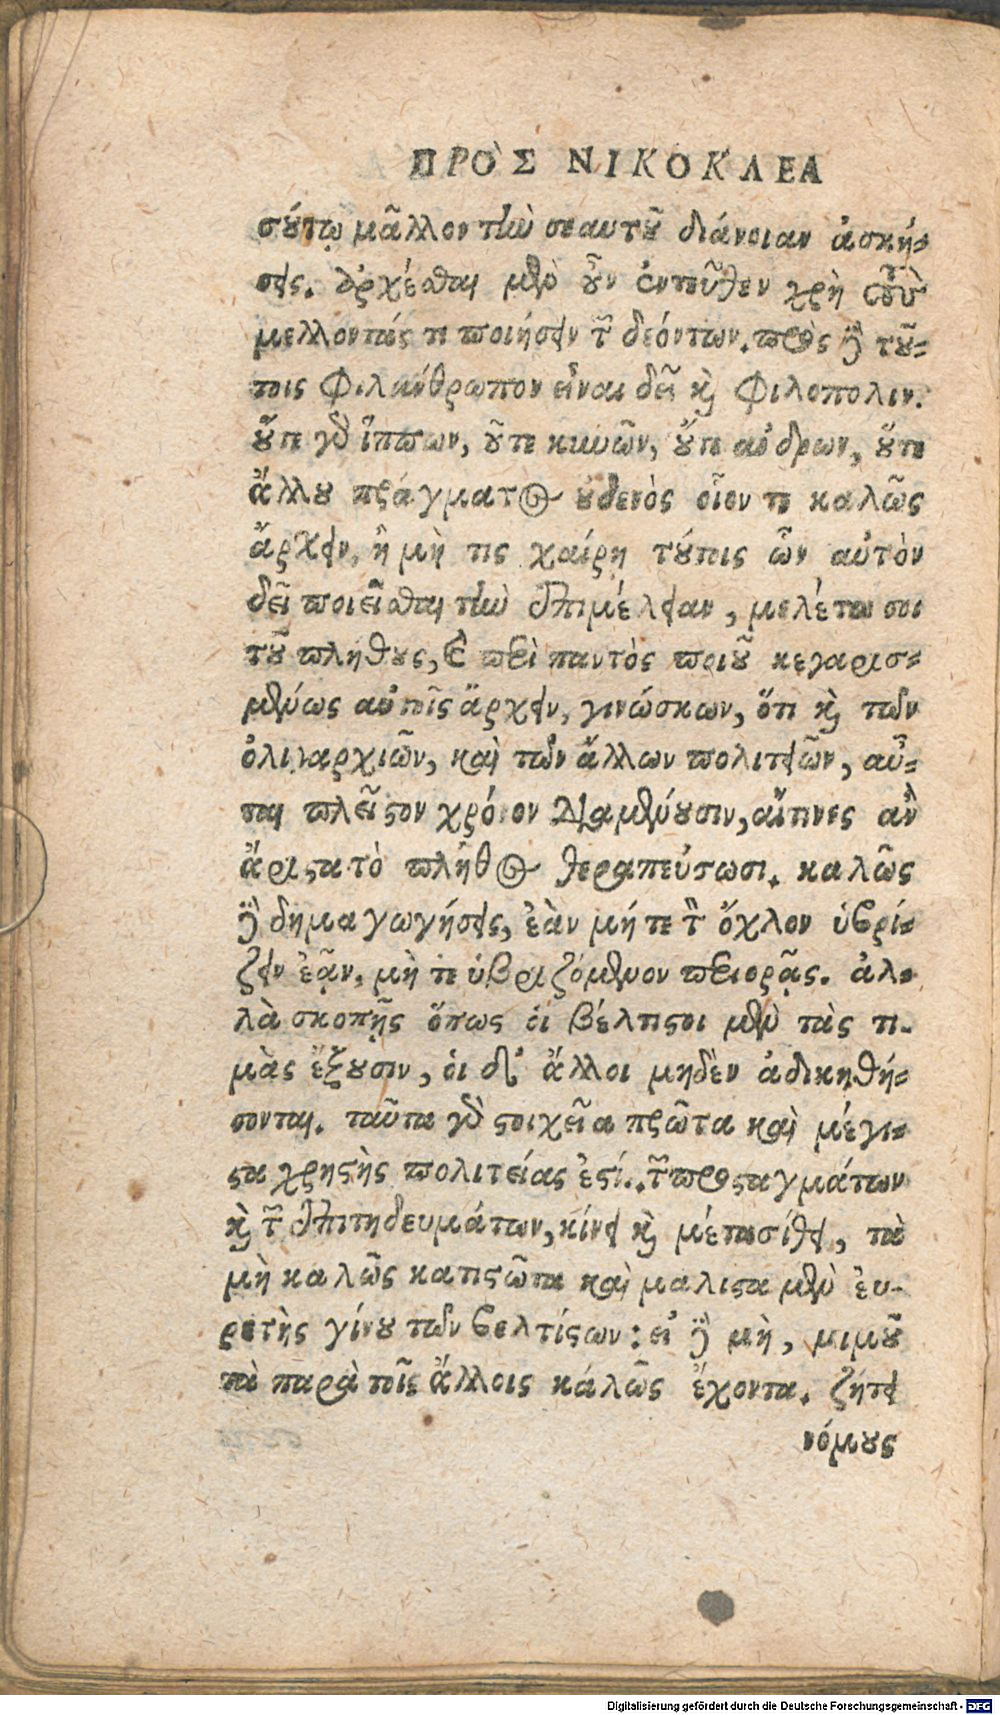 ΠΡῸΣ ΝΙΚΟΚΛΕΑ
σούτῳ μᾶλλον τὴν σεαυτοῦ διάνοιαν ἀσκή-
σεις. ἄρχεσθαι μὲν οὖν ἐντεῦθεν χρὴ τοὺς
μέλλοντάς τι ποιήσειν τῶν δεόντων. πρὸς δὲ τού-
τοις Φιλάνθρωπον εἶναι δεῖ καὶ Φιλοπολιν.
οὔτε γὰρ ἵππων, οὔτε κυνῶν, οὔτε ανδρων, οὔτε
ἄλλου πράγματος οὐδενὸς οἷον τε καλῶς
ἄρχειν, ἢ μὴ τις χαίρῃ τούτοις ὧν αὐτὸν
δεῖ ποιεῖσθαι τὴν ἐπιμέλειαν, μελέτω σοι
τοῦ πλήθους, καὶ περὶ παντὸς ποιοῦ κεχαρισ-
μένως αὐτοῖς ἄρχειν, γινώσκων, ὅτι καὶ τῶν
ὀλιγαρχιῶν, καὶ τῶν ἄλλων πολιτειῶν, αὗ-
ται πλεῖστον χρόνον διαμένουσιν, αἵτινες ἂν
ἄριστα τὸ πλῆθος θεραπεύσωσι. καλῶς
δὲ δημαγωγήσεις, ἐὰν μή τε τὸν ὄχλον ὑβρί-
ζειν ἐᾷν, μὴ τε ὑβριζόμενον περιορᾷς. ἀλ-
λὰ σκοπῇς ὅπως οἱ βέλτιστοι μὲν τὰς τι-
μὰς ἕξουσιν, οἱ δ' ἄλλοι μηδὲν ἀδικηθή-
σονται. ταῦτα γὰρ στοιχεῖα πρῶτα καὶ μέγι-
στα χρηστῆς πολιτείας ἐστί. τῶν προσταγμάτων
καὶ τῶν ἐπιτηδευμάτων, κίνει καὶ μετατίθει, τὰ
μὴ καλῶς καθεστῶτα καὶ μαλιστα μὲν εὑ-
ρετὴς γίνου τῶν βελτίστων: εἰ δὲ μὴ, μιμοῦ
τὰ παρὰ τοῖς ἄλλοις καλῶς ἔχοντα. ζήτει
νόμους
Digitalisierung gefördert durch die Deutsche Forschungsgemeinschaft - DFG